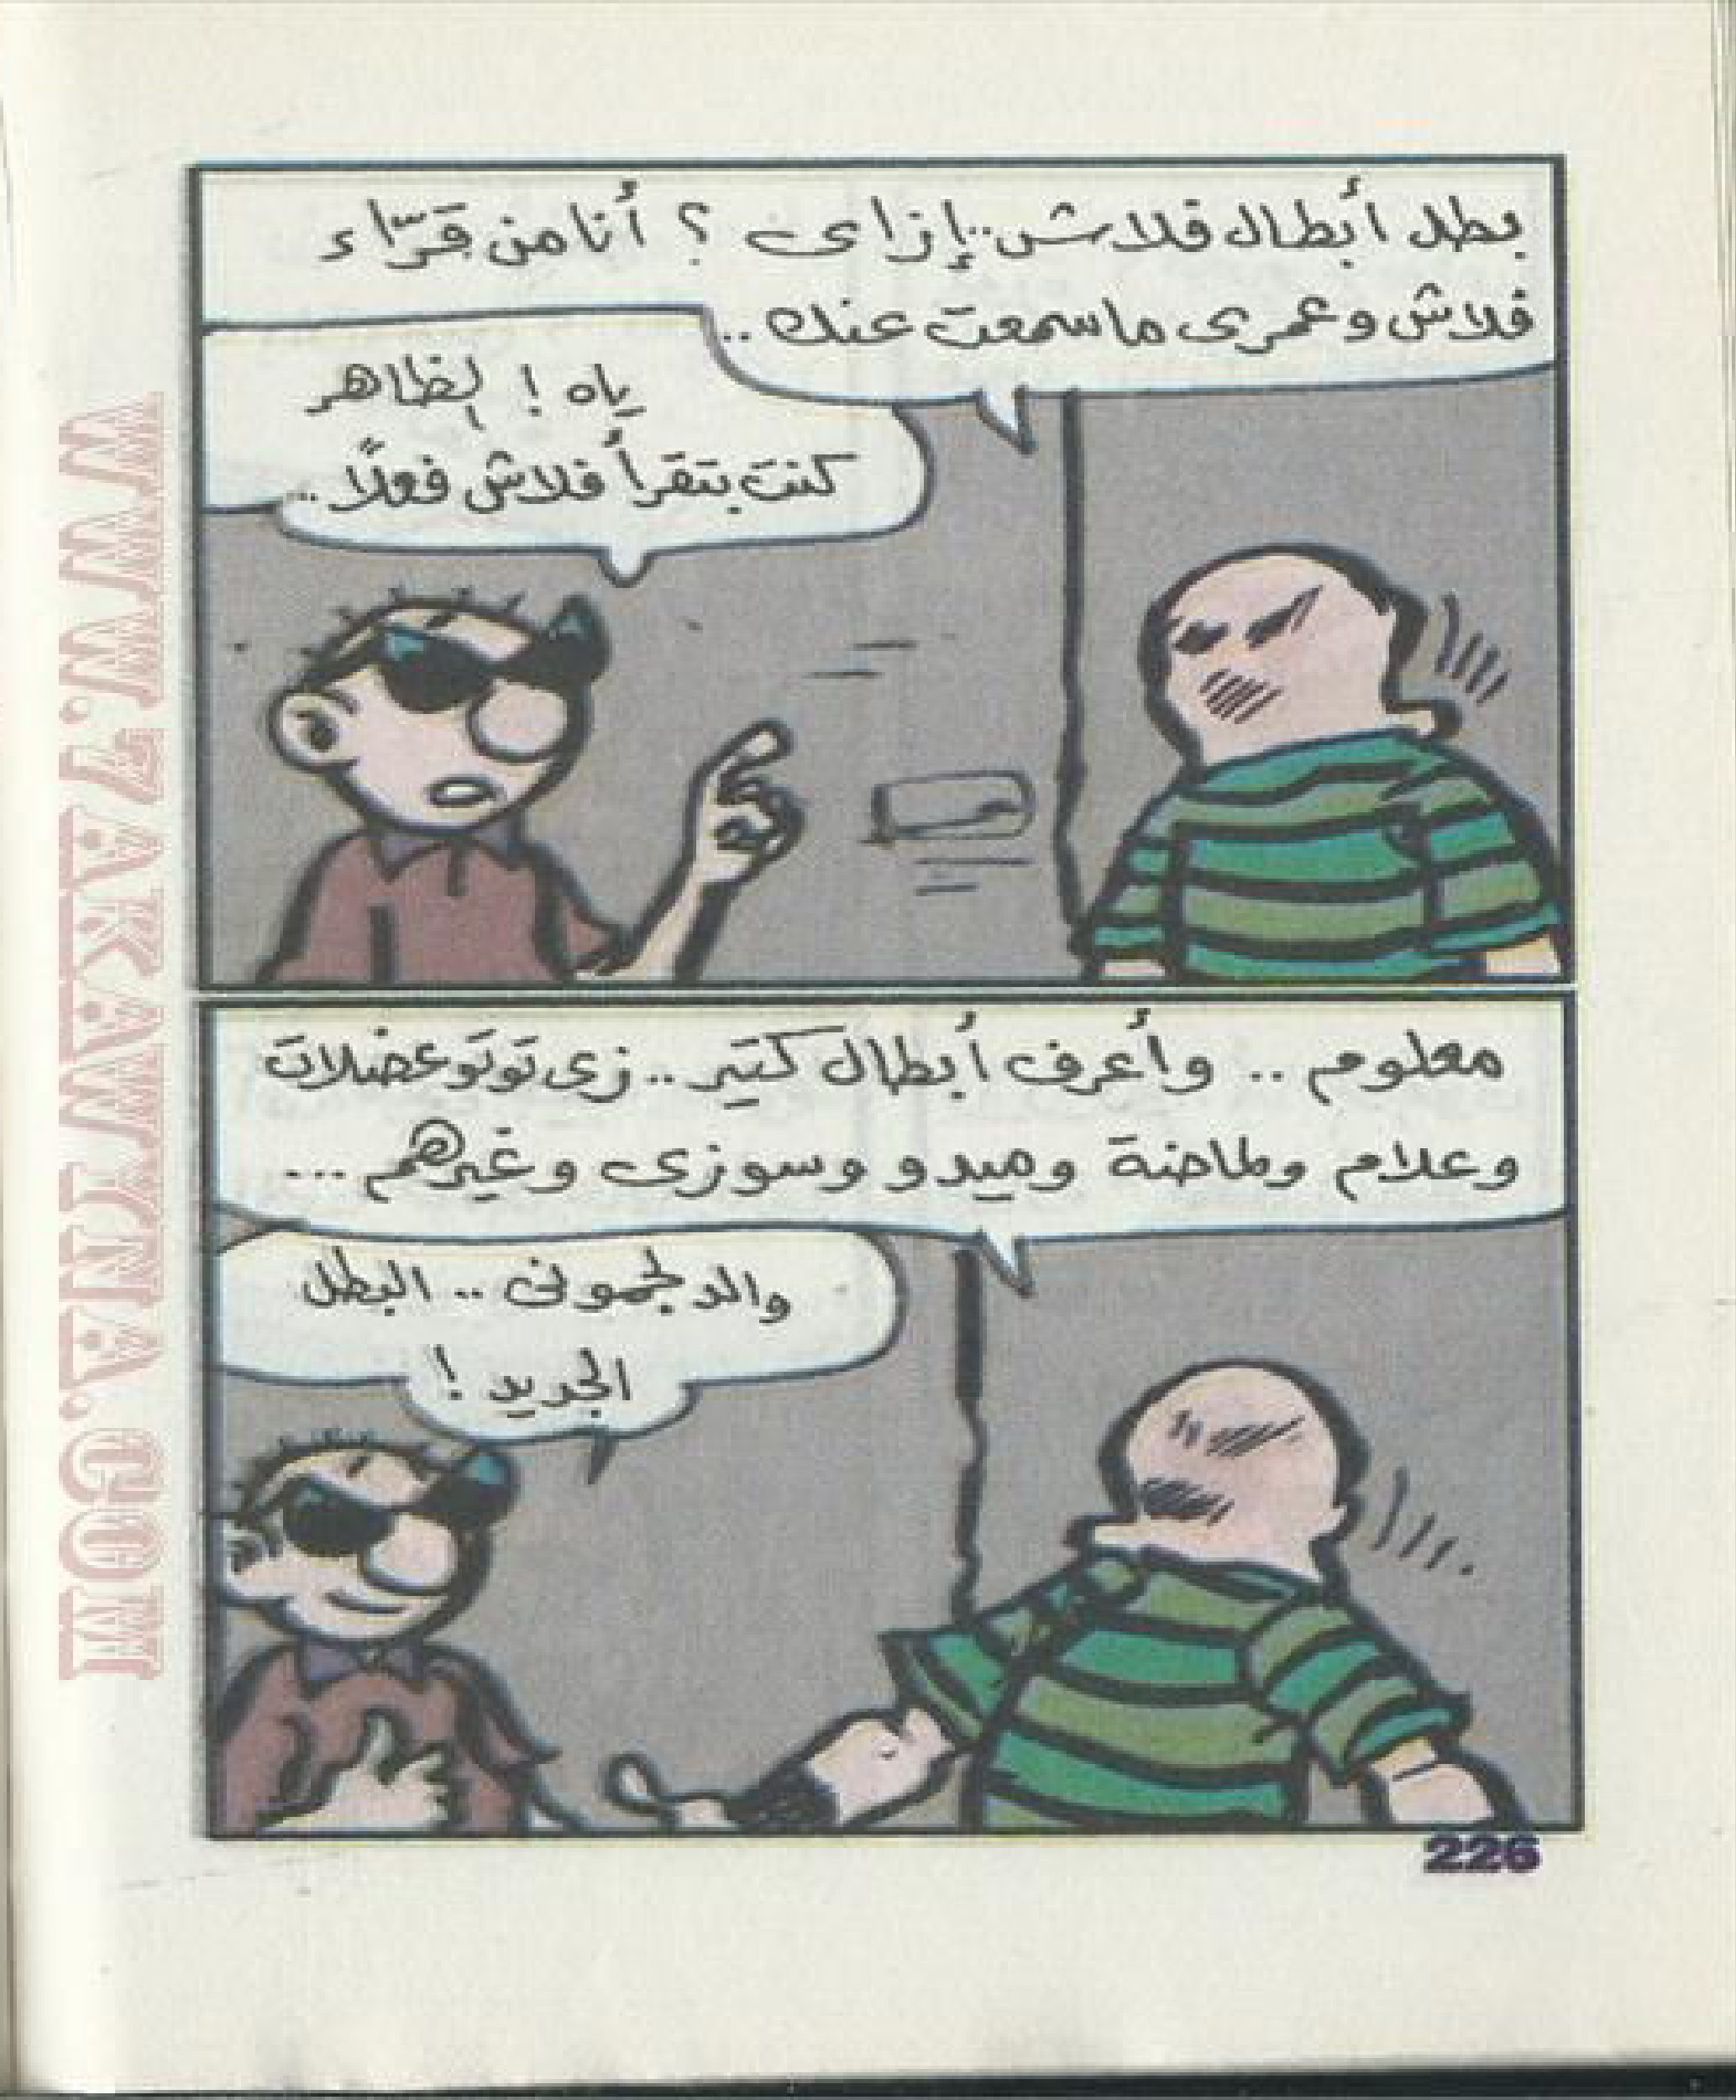 بطل أبطال فلاش..إزاى ؟ أنا من قرّاء
فلاش وعمرى ما سمعت عنك..
ياه ! الظاهر
كنت بتقرأ فلاش فعلًا..
معلوم .. وأعرف أبطال كتير.. زى توتو عضلات
وعلام وطاحنة وميدو وسوزى وغيرهم ...
والدلجمونى .. البطل
الجديد !
226
WWW.7AKAWITNA.COM